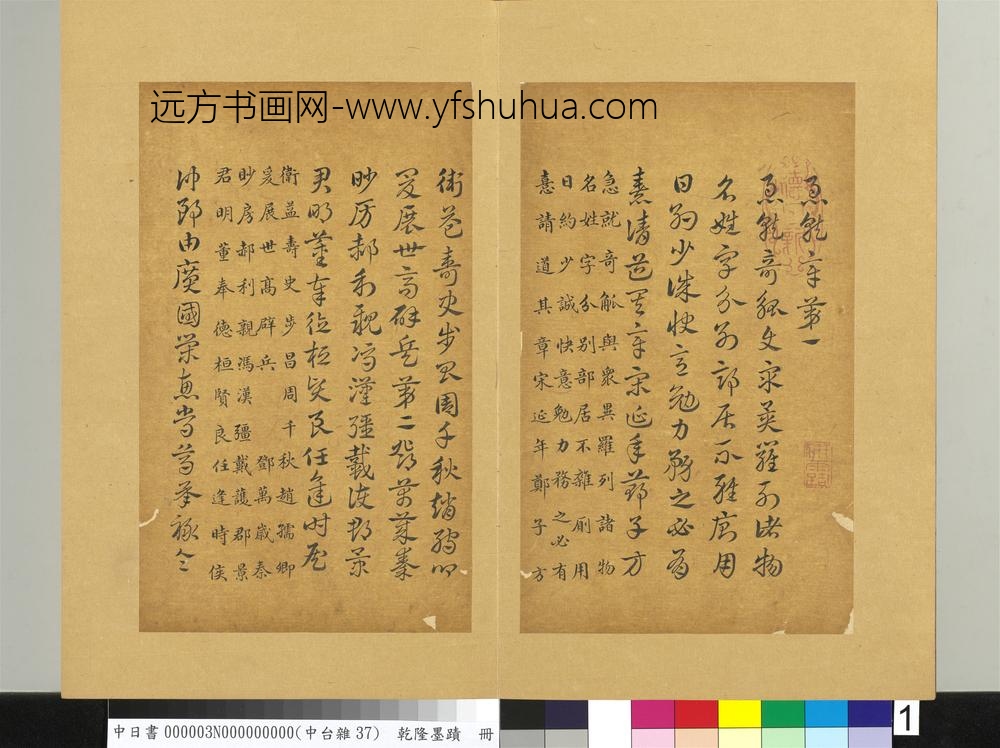 远方书画网-www.yfshuhua.com
急就章第一
急就奇觚與衆異羅列諸物
名姓字分别部居不雜厠用
日約少誠快意勉力務之必有
憙請道其章宋延年鄭子方
急就奇觚與衆異羅列諸物
名姓字分别部居不雜厠用
日約少誠快意勉力務之必有
憙請道其章宋延年鄭子方
衛益壽史步昌周千秋趙孺卿
爰展世高辟兵第二鄧萬歲秦
眇房郝利親馮漢彊戴護郡景
君明董奉德桓賢良任逢時侯
衛益壽史步昌周千秋趙孺卿
爰展世高辟兵鄧萬歲秦
眇房郝利親馮漢彊戴護郡景
君明董奉德桓賢良任逢時侯
仲郎由廣國榮惠常烏承祿令
中日書 000003N000000000(中台雜 37) 乾隆墨蹟 冊
1